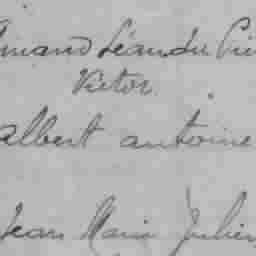 Amand Léandre
Victor.
albert antoine
Jean Marie Julien